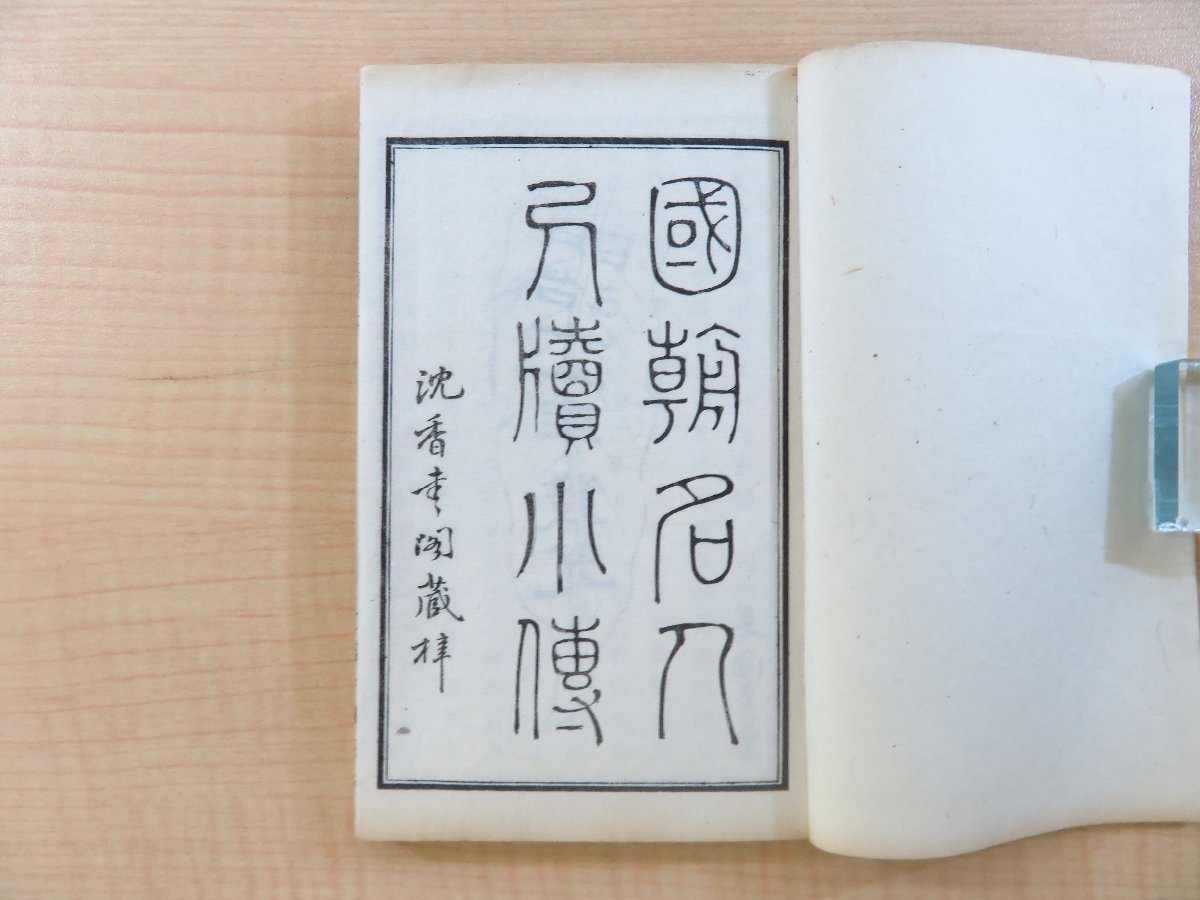 國朝名人
尺牘小傳
沈香臺閣藏梓